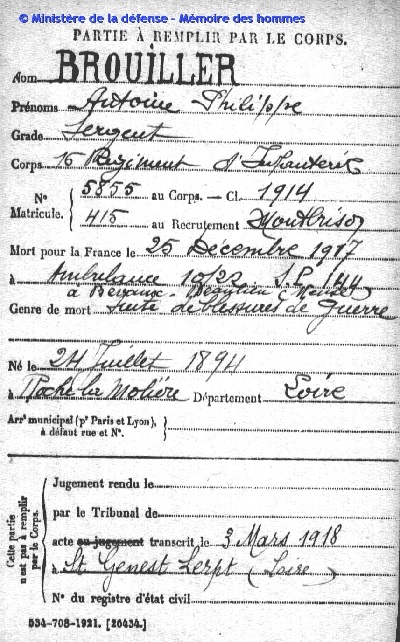 © Ministère de la défense - Mémoire des hommes
PARTIE À REMPLIR PAR LE CORPS.
Nom BROUILLER
Prénoms Antoine Philippe
Grade Sergent
Corps 16 Régiment d'Infanterie
N° Matricule. { 5855 au Corps. — Cl. 1914
415 au Recrutement Montbrison
Mort pour la France le 25 Décembre 1917
à Ambulance 10/22 S.P. 144
à Beauzée (Meuse)
Genre de mort Suite de blessures de Guerre
Né le 24 Juillet 1894
à Roche la Molière Département Loire
Arrt municipal (pr Paris et Lyon), à défaut rue et N°. }
Cette partie n'est pas à remplir par le Corps. {
Jugement rendu le
par le Tribunal de
acte ou jugement transcrit le 3 Mars 1918
à St Genest Lerpt (Loire)
N° du registre d'état civil
534-708-1921. [26434.]